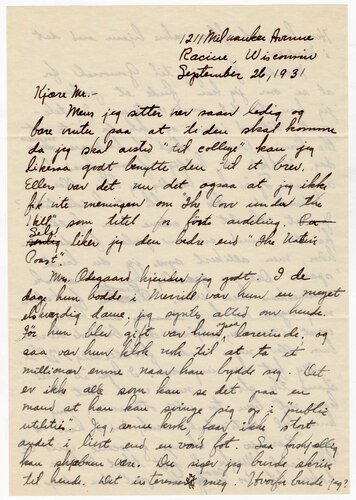 1211 Milwaukee Avenue
Racine, Wisconsin
September 26, 1931
Kjære Mr.-
Mens jeg sitter her saan ledig og
bare venter paa at tiden skal komme
da jeg skal avsted "til college" kan jeg
likesaa godt benytte den til et brev.
Ellers var det nu det ogsaa at jeg ikke
fik vite meningen om "The Cove under the
Hill" som titel for første avdeling.
Selv liker jeg den bedre end "The Waters
Mrs. Odegaard kjender jeg godt. I de
dage hun bodde i Merrill var hun en meget
elskverdig dame, jeg syntes altid om hende.
Før hun blev gift var hun lærerinde, og
saa var hun klok nok til at ta et
millionær emne naar han bydde sig. Det
er ikke alle som kan se det paa en
mand at han kan svinge sig op i "public
utilities". Jeg, arme krok, faar ikke stort
andet i livet end en vond fot. Saa forskjellig
kan skjæbnen være. Du siger jeg burde skrive
til hende. Det interesserer mig. Hvorfor burde jeg?